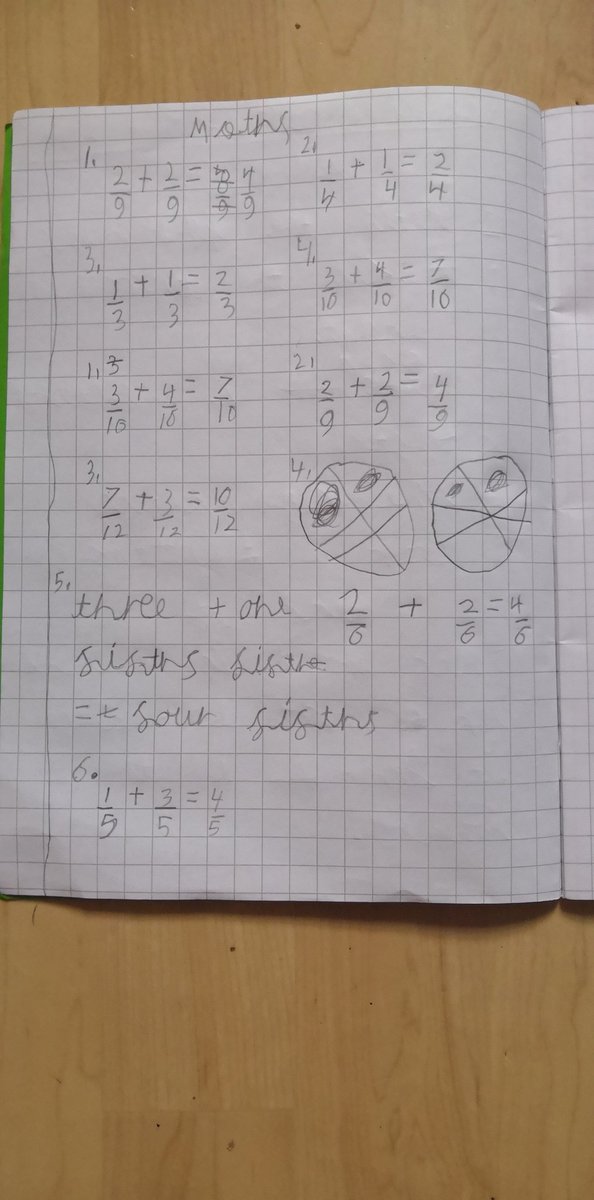 Maths
1. 2/9 + 2/9 = 4/9 2. 1/4 + 1/4 = 2/4
3. 1/3 + 1/3 = 2/3 4. 3/10 + 4/10 = 7/10
1. 3/10 + 4/10 = 7/10 2. 2/9 + 2/9 = 4/9
3. 7/12 + 3/12 = 10/12 4.
5. three + one 2/6 + 2/6 = 4/6
sisths sisth
= four sisths
6. 1/5 + 3/5 = 4/5